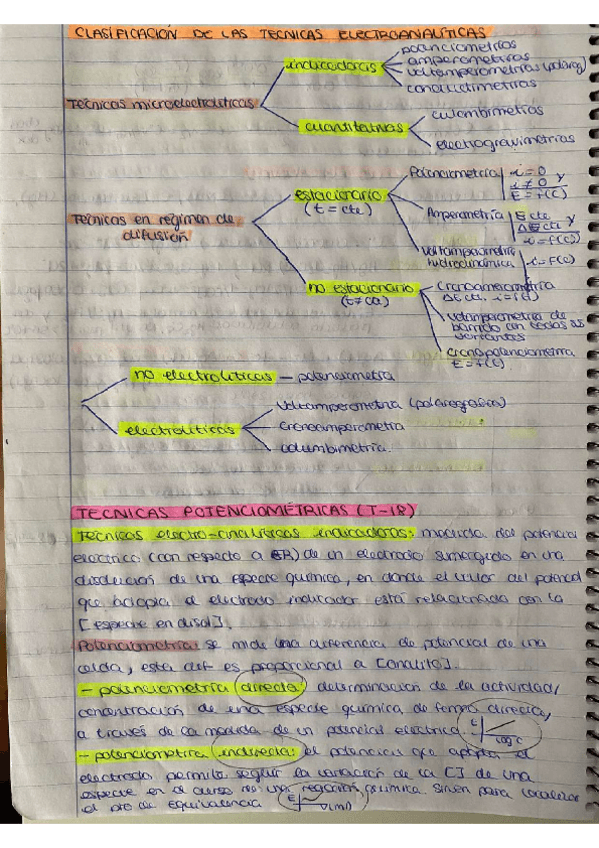 CLASIFICACIÓN DE LAS TECNICAS ELECTROANALÍTICAS
Tecnicas microelectroliticas
indicadoras
potenciometrias
amperometrias
voltamperometrias (polarog)
conductimetrias
cuantitativas
culombimetrias
electrogravimetrias
Tecnicas en regimen de difusión
estacionario
(t = cte)
Potenciometria
i = 0 y
i ≠ 0
E = f(C)
Amperometria
E cte y
ΔE cte
i = f(C)
Voltamperometria
hidrodinámica
i = f(C)
no estacionario
(t ≠ cte)
Cronoamperometria
ΔE cte, i = f(t)
voltamperometria de
barrido con todas sus
variantes
cronopotenciometria
E = f(t)
no electroliticas — potenciometria
electroliticas
Voltamperometria (polarografia)
Cronoamperometria
coulombimetria.
TECNICAS POTENCIOMÉTRICAS (T-18)
Técnicas electro-analíticas indicadoras: medida del potencial
electrico (con respecto a ER) de un electrodo sumergido en una
disolución de una especie quimica, en donde el valor del potencial
que acopia el electrodo indicador está relacionado con la
[especie en disol].
Potenciometria: se mide una diferencia de potencial de una
celda, esta dif es proporcional a [analito].
- potenciometria directa: determinación de la actividad/
concentración de una especie quimica de forma directa,
a través de la medida de un potencial electrico. E log C
- potenciometria indirecta: el potencial que adopta el
electrodo permite seguir la variación de la [] de una
especie en el curso de una reacción quimica. Sirven para localizar
el pto de equivalencia E V(ml)